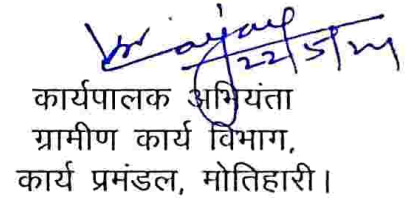 22/5/24
कार्यपालक अभियंता
ग्रामीण कार्य विभाग,
कार्य प्रमंडल, मोतिहारी।